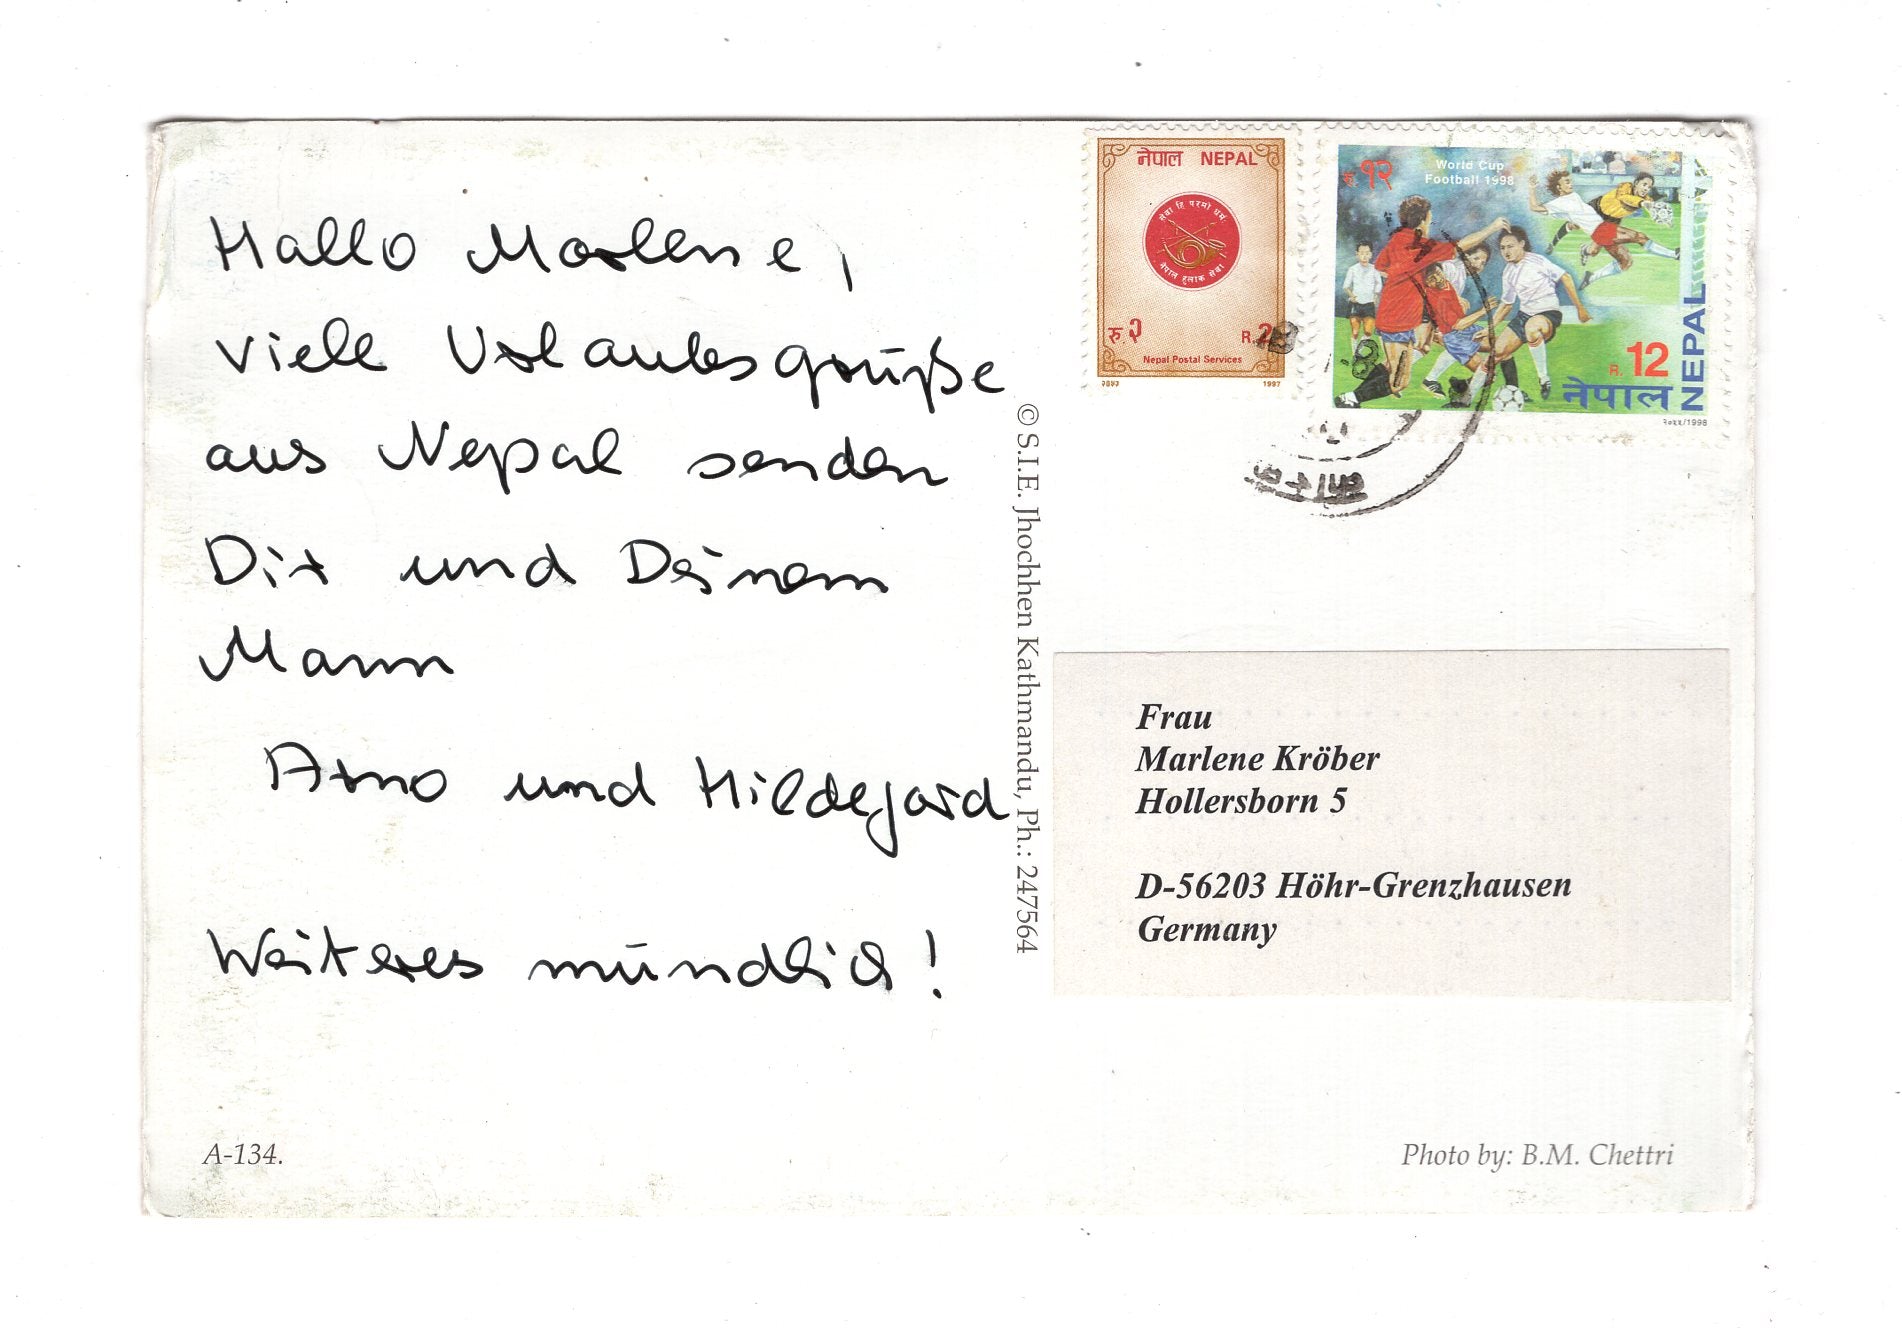 Hallo Marlene,
viele Urlaubsgrüße
aus Nepal senden
Dir und Deinem
Mann
Arno und Hildegard
Weiteres mündlich!
A-134.
© S.I.E. Jhochhen Kathmandu, Ph.: 247564
नेपाल NEPAL
सेवा हि परमो धर्म
नेपाल हुलाक सेवा
रु. २ R. 2
Nepal Postal Services
1997
रु. १२
World Cup
Football 1998
R. 12
नेपाल
NEPAL
२०५५/1998
Frau
Marlene Kröber
Hollersborn 5
D-56203 Höhr-Grenzhausen
Germany
Photo by: B.M. Chettri